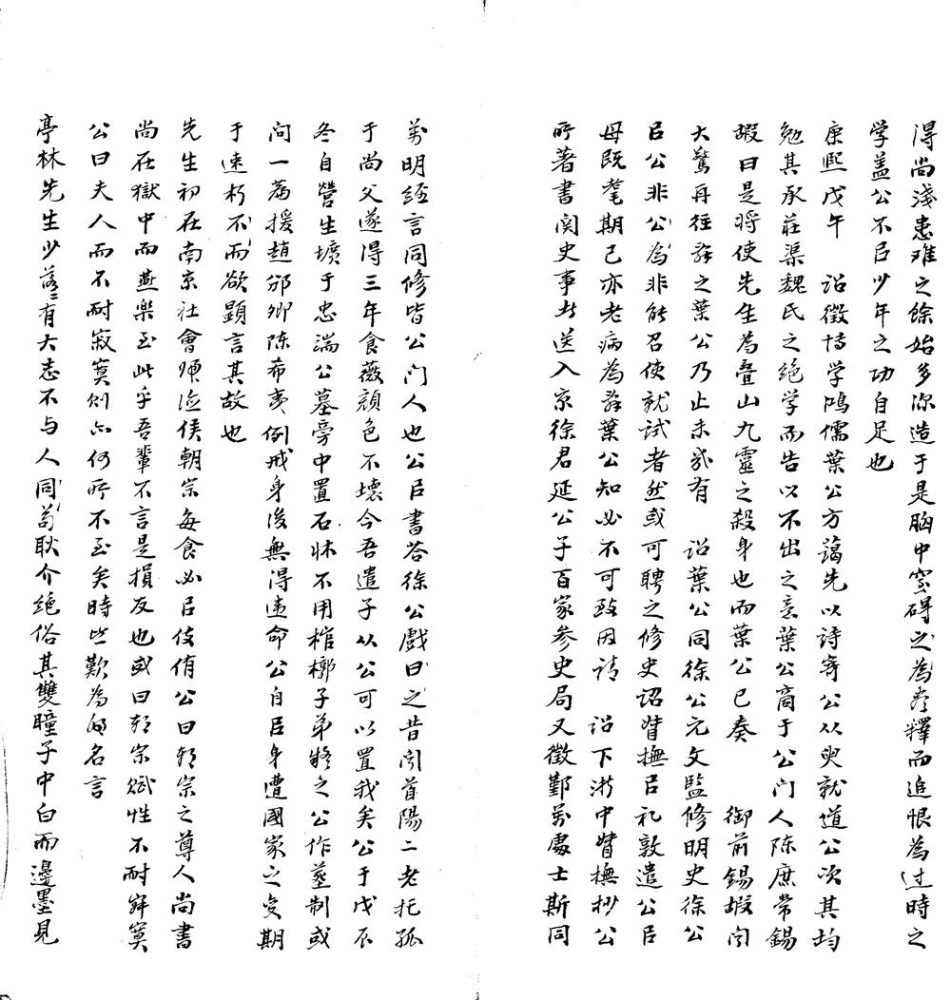 得尚淺患难之餘始多深造于是胸中窒碍之為尽釋而追恨為过時之
学盖公不㠯少年之功自足也
康熙戊午　詔徵博学鴻儒葉公方藹先以詩寄公从臾就道公次其均
勉其承莊渠魏氏之绝学而告以不出之意葉公商于公門人陈庶常錫
嘏曰是將使先生為叠山九靈之殺身也而葉公已奏　御前錫嘏闻
大驚再往辞之葉公乃止未幾有　詔葉公同徐公元文監修明史徐公
㠯公非能召使就試者然或可聘之修史诏督撫㠯礼敦遣公㠯
母既耄期己亦老病為辞葉公知必不可致因请　詔下浙中督撫抄公
所著書関史事者送入京徐君延公子百家参史局又徵鄞萬處士斯同
萬明经言同修皆公门人也公㠯書荅徐公戲曰之昔闻首陽二老托孤
于尚父遂得三年食薇顔色不壊今吾遣子从公可以置我矣公于戊辰
冬自營生壙于忠端公墓旁中置石牀不用棺槨子弟疑之公作葬制或
问一篇援趙邠卿陈希夷例戒身後無得违命公自㠯身遭國家之变期
于速朽而不欲顕言其故也
先生初在南京社會歸德侯朝宗每食必㠯伎侑公曰朝宗之尊人尚書
尚在獄中而燕樂至此乎吾輩不言是損友也或曰朝宗赋性不耐寂寞
公曰夫人而不耐寂寞则亦何所不至矣時皆歎為名言
亭林先生少落落有大志不与人苟同耿介绝俗其雙瞳子中白而邊墨見